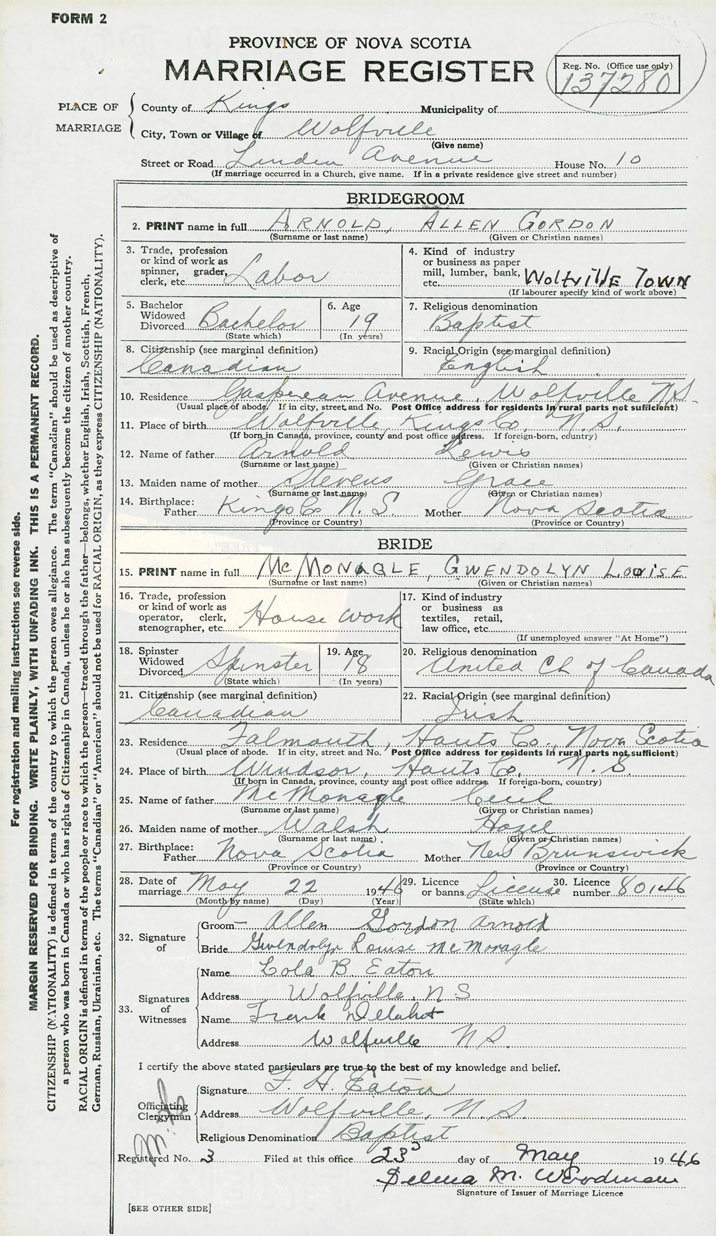 FORM 2
PROVINCE OF NOVA SCOTIA
MARRIAGE REGISTER
Reg. No. (Office use only)
137280
PLACE OF MARRIAGE
County of Kings Municipality of
City, Town or Village of Wolfville
(Give name)
Street or Road Linden Avenue House No. 10
(If marriage occurred in a Church, give name. If in a private residence give street and number)
BRIDEGROOM
2. PRINT name in full ARNOLD, ALLEN GORDON
(Surname or last name) (Given or Christian names)
3. Trade, profession or kind of work as spinner, grader, clerk, etc. Labor
4. Kind of industry or business as paper mill, lumber, bank, etc. Wolfville Town
(If labourer specify kind of work above)
5. Bachelor Widowed Divorced Bachelor
(State which)
6. Age 19
(In years)
7. Religious denomination
Baptist
8. Citizenship (see marginal definition)
Canadian
9. Racial Origin (see marginal definition)
English
10. Residence Gaspereau Avenue, Wolfville N.S.
(Usual place of abode. If in city, street and No. Post Office address for residents in rural parts not sufficient)
11. Place of birth Wolfville, Kings Co. N.S.
(If born in Canada, province, county and post office address. If foreign-born, country)
12. Name of father Arnold Lewis
(Surname or last name) (Given or Christian names)
13. Maiden name of mother Stevens Grace
(Surname or last name) (Given or Christian names)
14. Birthplace: Father Kings Co N.S. Mother Nova Scotia
(Province or Country) (Province or Country)
BRIDE
15. PRINT name in full McMONAGLE, GWENDOLYN LOUISE
(Surname or last name) (Given or Christian names)
16. Trade, profession or kind of work as operator, clerk, stenographer, etc. House work
17. Kind of industry or business as textiles, retail, law office, etc.
(If unemployed answer "At Home")
18. Spinster Widowed Divorced Spinster
(State which)
19. Age 18
(In years)
20. Religious denomination
United Ch of Canada
21. Citizenship (see marginal definition)
Canadian
22. Racial Origin (see marginal definition)
Irish
23. Residence Falmouth, Hants Co., Nova Scotia
(Usual place of abode. If in city, street and No. Post Office address for residents in rural parts not sufficient)
24. Place of birth Windsor, Hants Co. N.S
(If born in Canada, province, county and post office address. If foreign-born, country)
25. Name of father McMonagle Cecil
(Surname or last name) (Given or Christian names)
26. Maiden name of mother Walsh Hazel
(Surname or last name) (Given or Christian names)
27. Birthplace: Father Nova Scotia Mother New Brunswick
(Province or Country) (Province or Country)
28. Date of marriage May 22 1946
(Month by name) (Day) (Year)
29. Licence or banns License
(State which)
30. Licence number 80146
32. Signature of
Groom Allen Gordon Arnold
Bride Gwendolyn Louise McMonagle
33. Signatures of Witnesses
Name Lola B. Eaton
Address Wolfville, N S
Name Frank
Address Wolfville N.S.
I certify the above stated particulars are true to the best of my knowledge and belief.
Officiating Clergyman
Signature F. H. Eaton
Address Wolfville, N.S.
Religious Denomination Baptist
Registered No. 3 Filed at this office 23 day of May 1946
Selma M. Woodman
Signature of Issuer of Marriage Licence
[SEE OTHER SIDE]
For registration and mailing instructions see reverse side.
MARGIN RESERVED FOR BINDING. WRITE PLAINLY, WITH UNFADING INK. THIS IS A PERMANENT RECORD.
CITIZENSHIP (NATIONALITY) is defined in terms of the country to which the person owes allegiance. The term "Canadian" should be used as descriptive of
a person who was born in Canada or who has rights of Citizenship in Canada, unless he or she has subsequently become the citizen of another country.
RACIAL ORIGIN is defined in terms of the people or race to which the person—traced through the father—belongs, whether English, Irish, Scottish, French,
German, Russian, Ukrainian, etc. The terms "Canadian" or "American" should not be used for RACIAL ORIGIN, as they express CITIZENSHIP (NATIONALITY).